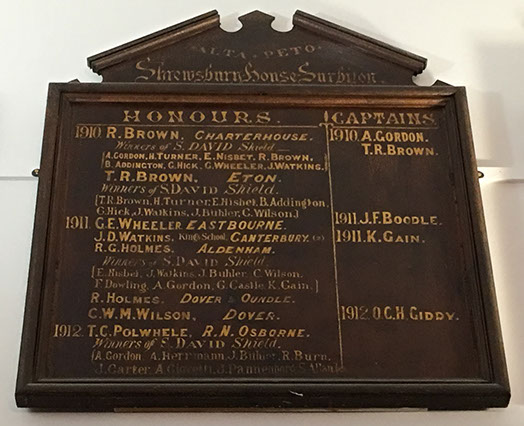 ALTA PETO
Shrewsbury House Surbiton
HONOURS. CAPTAINS.
1910. R. BROWN. CHARTERHOUSE. 1910. A. GORDON.
Winners of S. DAVID Shield — T.R. BROWN.
[A. GORDON, H. TURNER, E. NISBET, R. BROWN,
B. ADDINGTON, G. HICK, G. WHEELER, J. WATKING.]
T.R. BROWN, ETON.
Winners of S. DAVID Shield.
[T.R. Brown, H. Turner, E. Nisbet, B. Addington,
G. Hick, J. Watkins, J. Buhler, C. Wilson.]
1911. G.E. WHEELER EASTBOURNE. 1911. J.F. BOODLE.
J.D. WATKINS, King's School CANTERBURY. 1911. K. GAIN.
R.G. HOLMES, ALDENHAM.
Winners of S. DAVID Shield.
[E. Nisbet, J. Watkins, J. Buhler, C. Wilson,
F. Dowling, A. Gordon, G. Castle, K. Gain.]
R. HOLMES. DOVER & OUNDLE.
C.W.M. WILSON, DOVER. 1912. O.C.H. GIDDY.
1912. T.C. POLWHELE, R.N. OSBORNE.
Winners of S. DAVID Shield.
[A. Gordon, A. Herrmann, J. Buhler, R. Burn,
J. Carter, A.